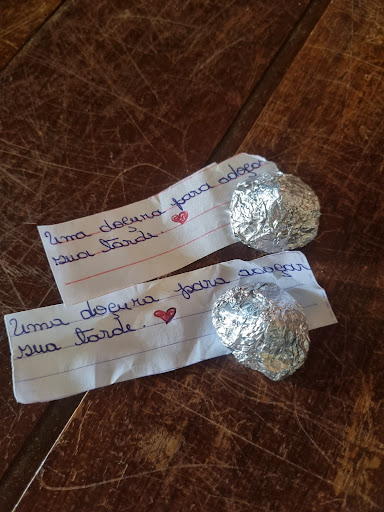 Uma doçura para adoça
sua tarde.
Uma doçura para adoçar
sua tarde.